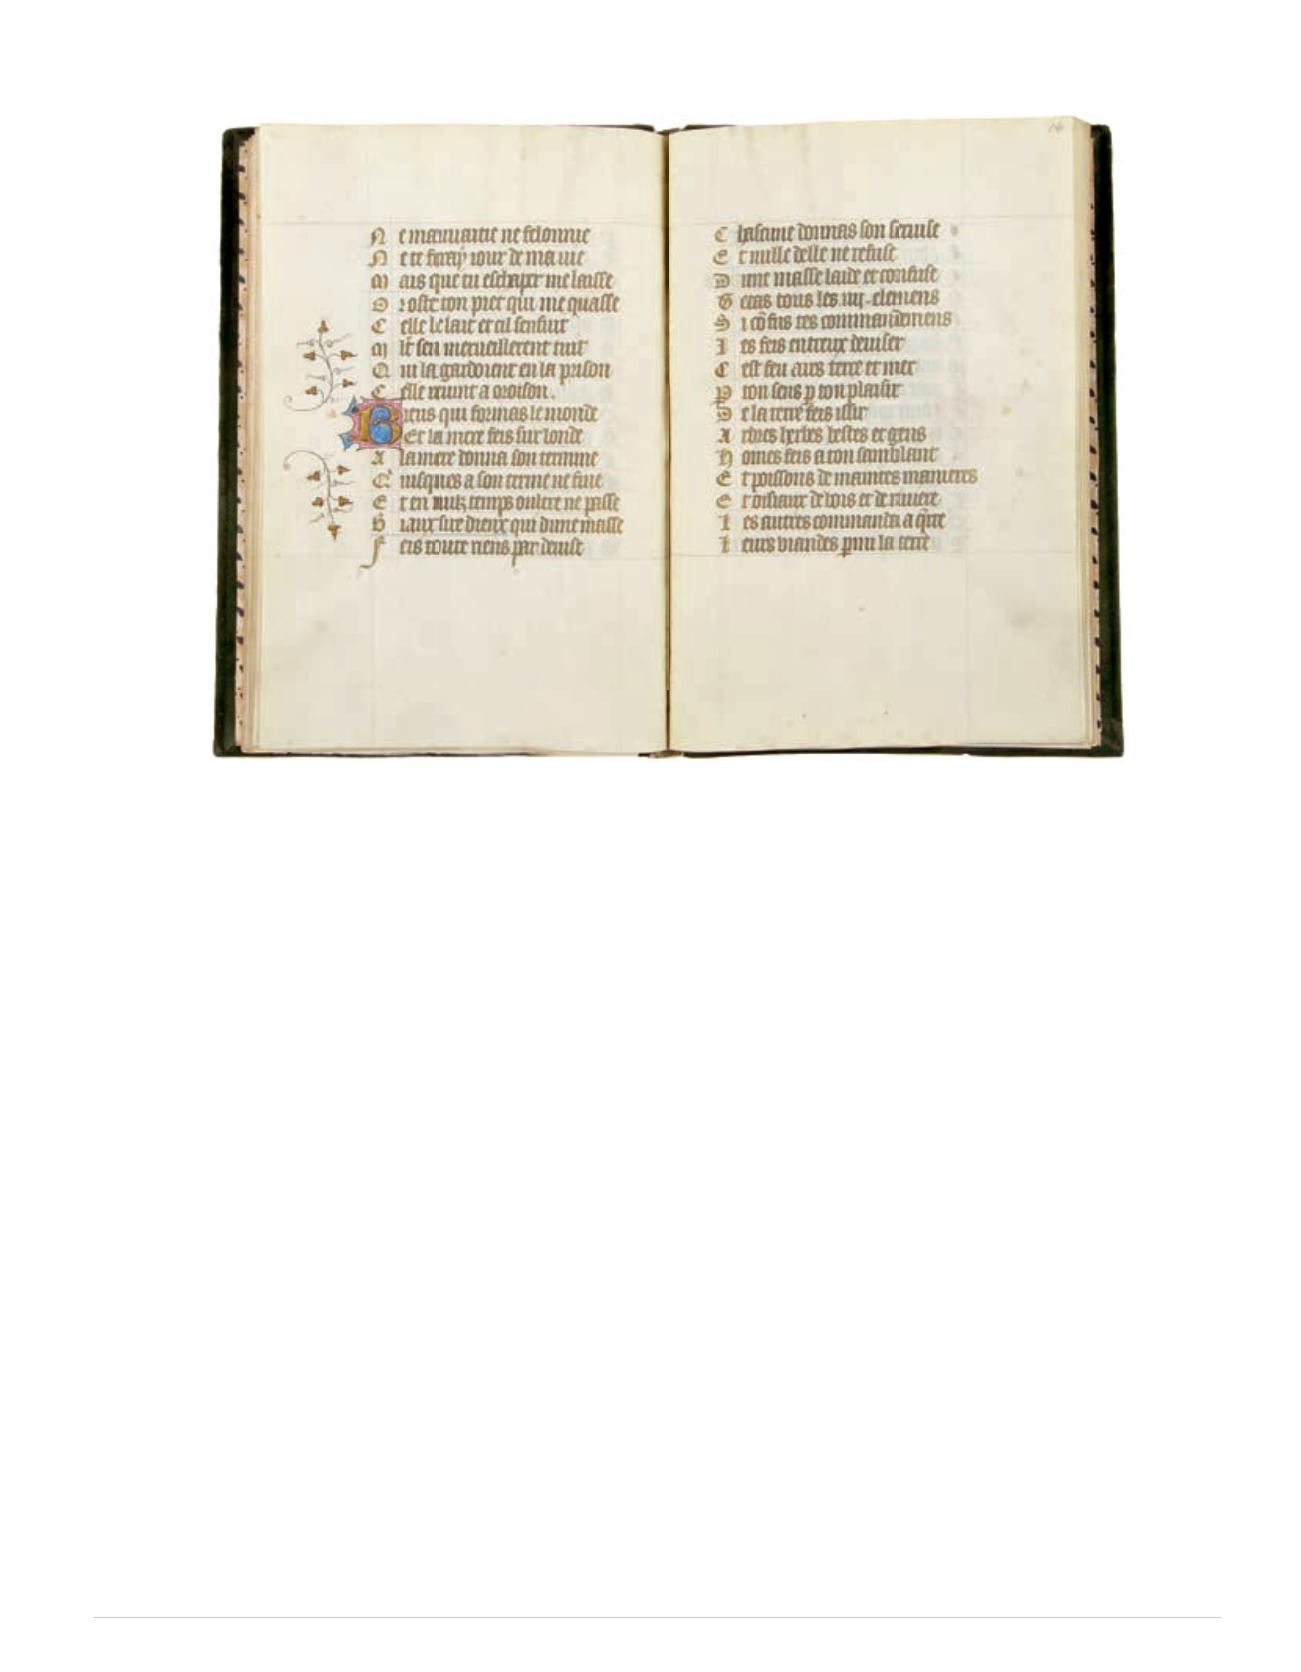 N e mauuaitie ne felonnie
N e te feray iour de ma vie
M ais que tu eschaper me laisse
O oste ton piet qui me quasse
C elle le lait et cil senfuit
M lt sen merueillerent tuit
Q ui la gardoient en la prison
C elle reuint a oroison.
B ieus qui formas le monde
Et la mere feis sur londe
A la mere donna son termine
Q iusques a son terme ne fine
E t en nulz temps oultre ne passe
B iaux sire dieux qui dune masse
F eis toute riens par deuise
14
C hascune donnas son seruise
E t nulle delle ne refuse
D une masse laide et confuse
G etas tous les iiij. elemens
S i cõ fus tes commandemens
L es feis entreux deuiser
C est feu airs terre et mer
P ton sens p ton plaisir
D e la terre feis issir
A rbres herbes bestes et gens
H omes feis a ton samblant
E t poissons de maintes manieres
E t oisiaux de bois et de riuiere
L es autres commanda a q̃rre
L eurs viandes p̃mi la terre